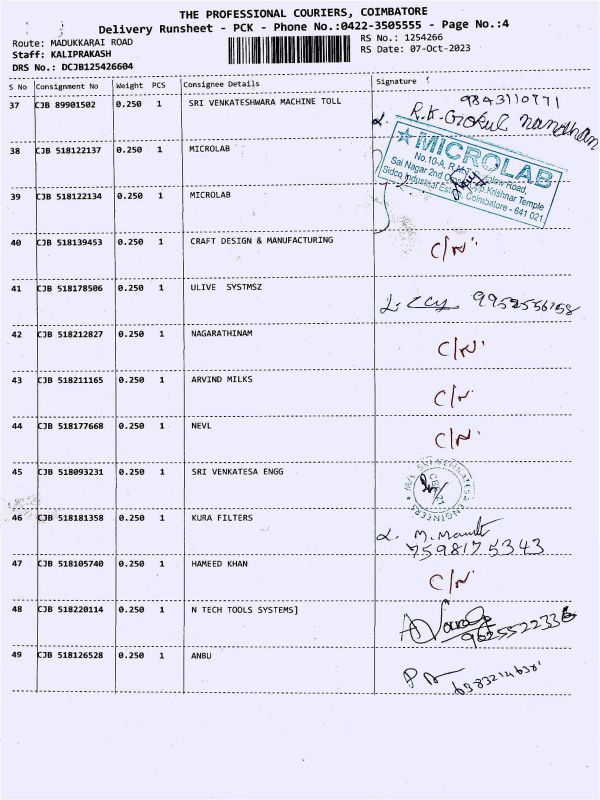 THE PROFESSIONAL COURIERS, COIMBATORE
Delivery Runsheet - PCK - Phone No.:0422-3505555 - Page No.:4
Route: MADUKKARAI ROAD
RS No.: 1254266
Staff: KALIPRAKASH
RS Date: 07-Oct-2023
DRS No.: DCJB125426604
S No Consignment No Weight PCS Consignee Details Signature
37 CJB 89901502 0.250 1 SRI VENKATESHWARA MACHINE TOLL
9843110771
R.K. Gokul Nandhan
38 CJB 518122137 0.250 1 MICROLAB
MICROLAB
Sai Nagar 2nd
Krishnar Temple
Sidco Industrial Estate, Coimbatore - 641 021
39 CJB 518122134 0.250 1 MICROLAB
40 CJB 518139453 0.250 1 CRAFT DESIGN & MANUFACTURING C/N
41 CJB 518178506 0.250 1 ULIVE SYSTMSZ
42 CJB 518212827 0.250 1 NAGARATHINAM C/N
43 CJB 518211165 0.250 1 ARVIND MILKS C/N
44 CJB 518177668 0.250 1 NEVL C/N
45 CJB 518093231 0.250 1 SRI VENKATESA ENGG
46 CJB 518181358 0.250 1 KURA FILTERS
7598175343
47 CJB 518105740 0.250 1 HAMEED KHAN C/N
48 CJB 518220114 0.250 1 N TECH TOOLS SYSTEMS]
49 CJB 518126528 0.250 1 ANBU